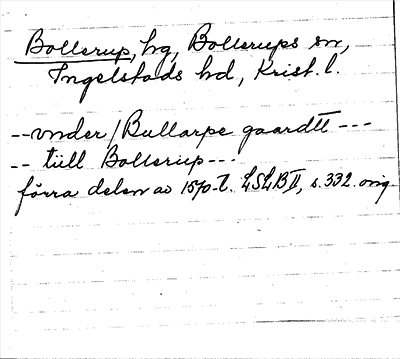 Bollerup, hg, Bollerups sn,
Ingelstads hd, Krist. l.
-- vnder / Bullarpe gaardtt ---
-- till Bollerup ---
förra delen av 1570-t. LSLB II, s. 332. orig.